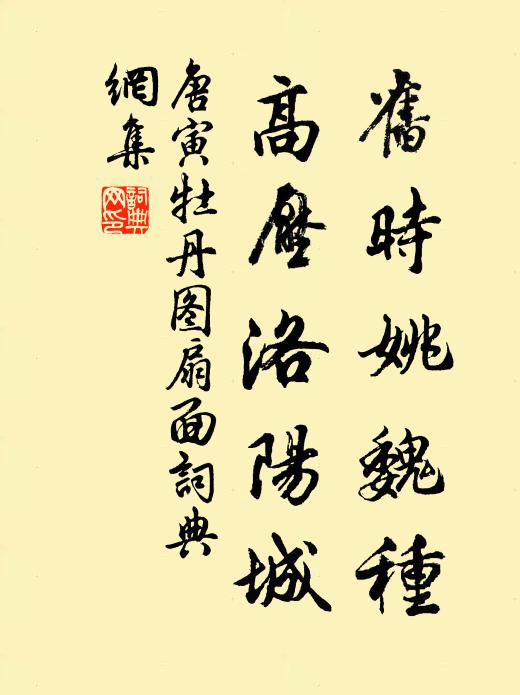 舊時姚魏種
高壓洛陽城
唐寅牡丹图扇面詞典
網集
詞典
网印